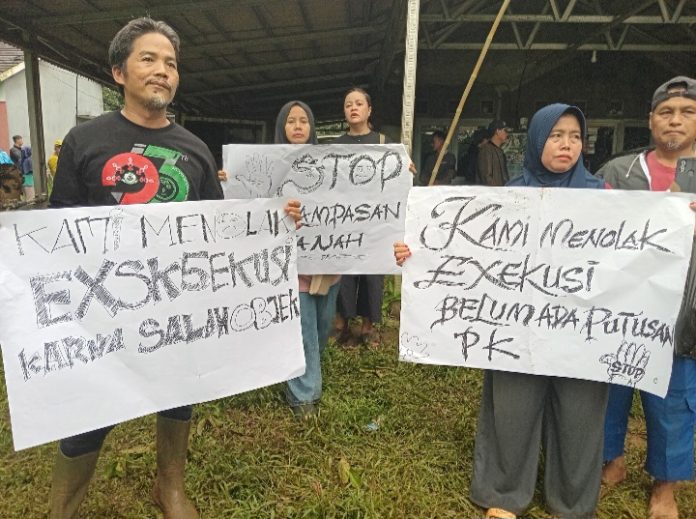 KAMI MENOLAK
EXSKSEKUSI
KARNA SALAH OBJEK
STOP
AMPASAN
ANAH
KAMI MENOLAK
EXEKUSI
BELUM ADA PUTUSAN
PK
STOP